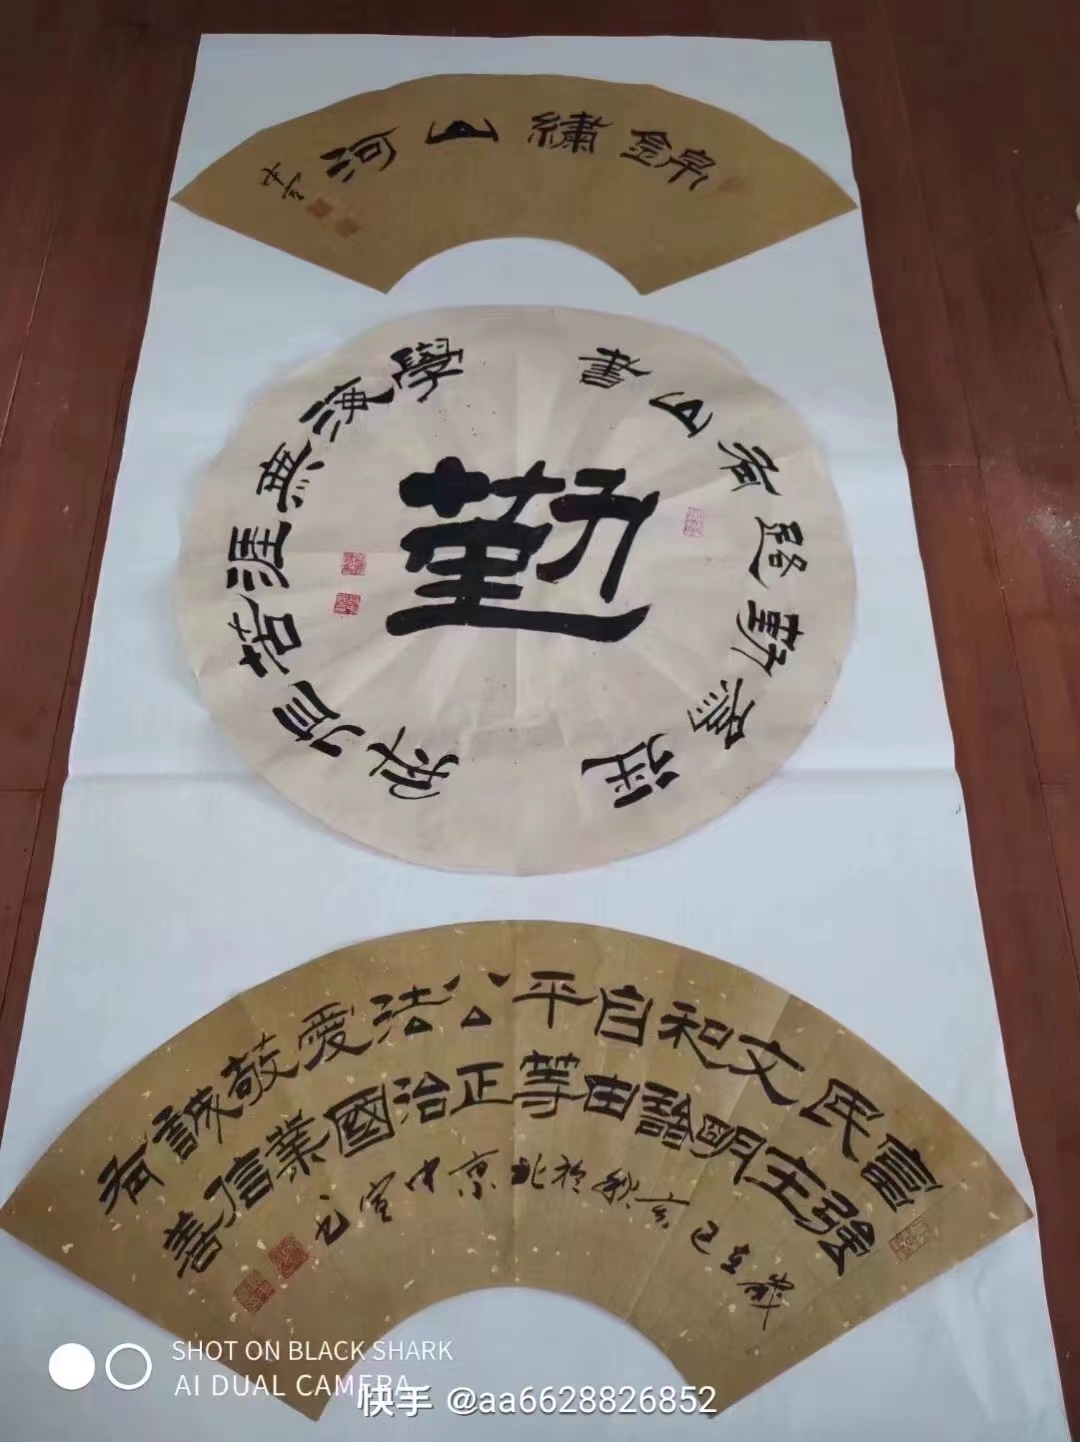 錦繡山河
勤
書山有路勤為徑
學海無涯苦作舟
富強
民主
文明
和諧
自由
平等
公正
法治
愛國
敬業
誠信
友善
歲在己亥秋於北京中宣書
SHOT ON BLACK SHARK
AI DUAL CAMERA
快手 @aa6628826852